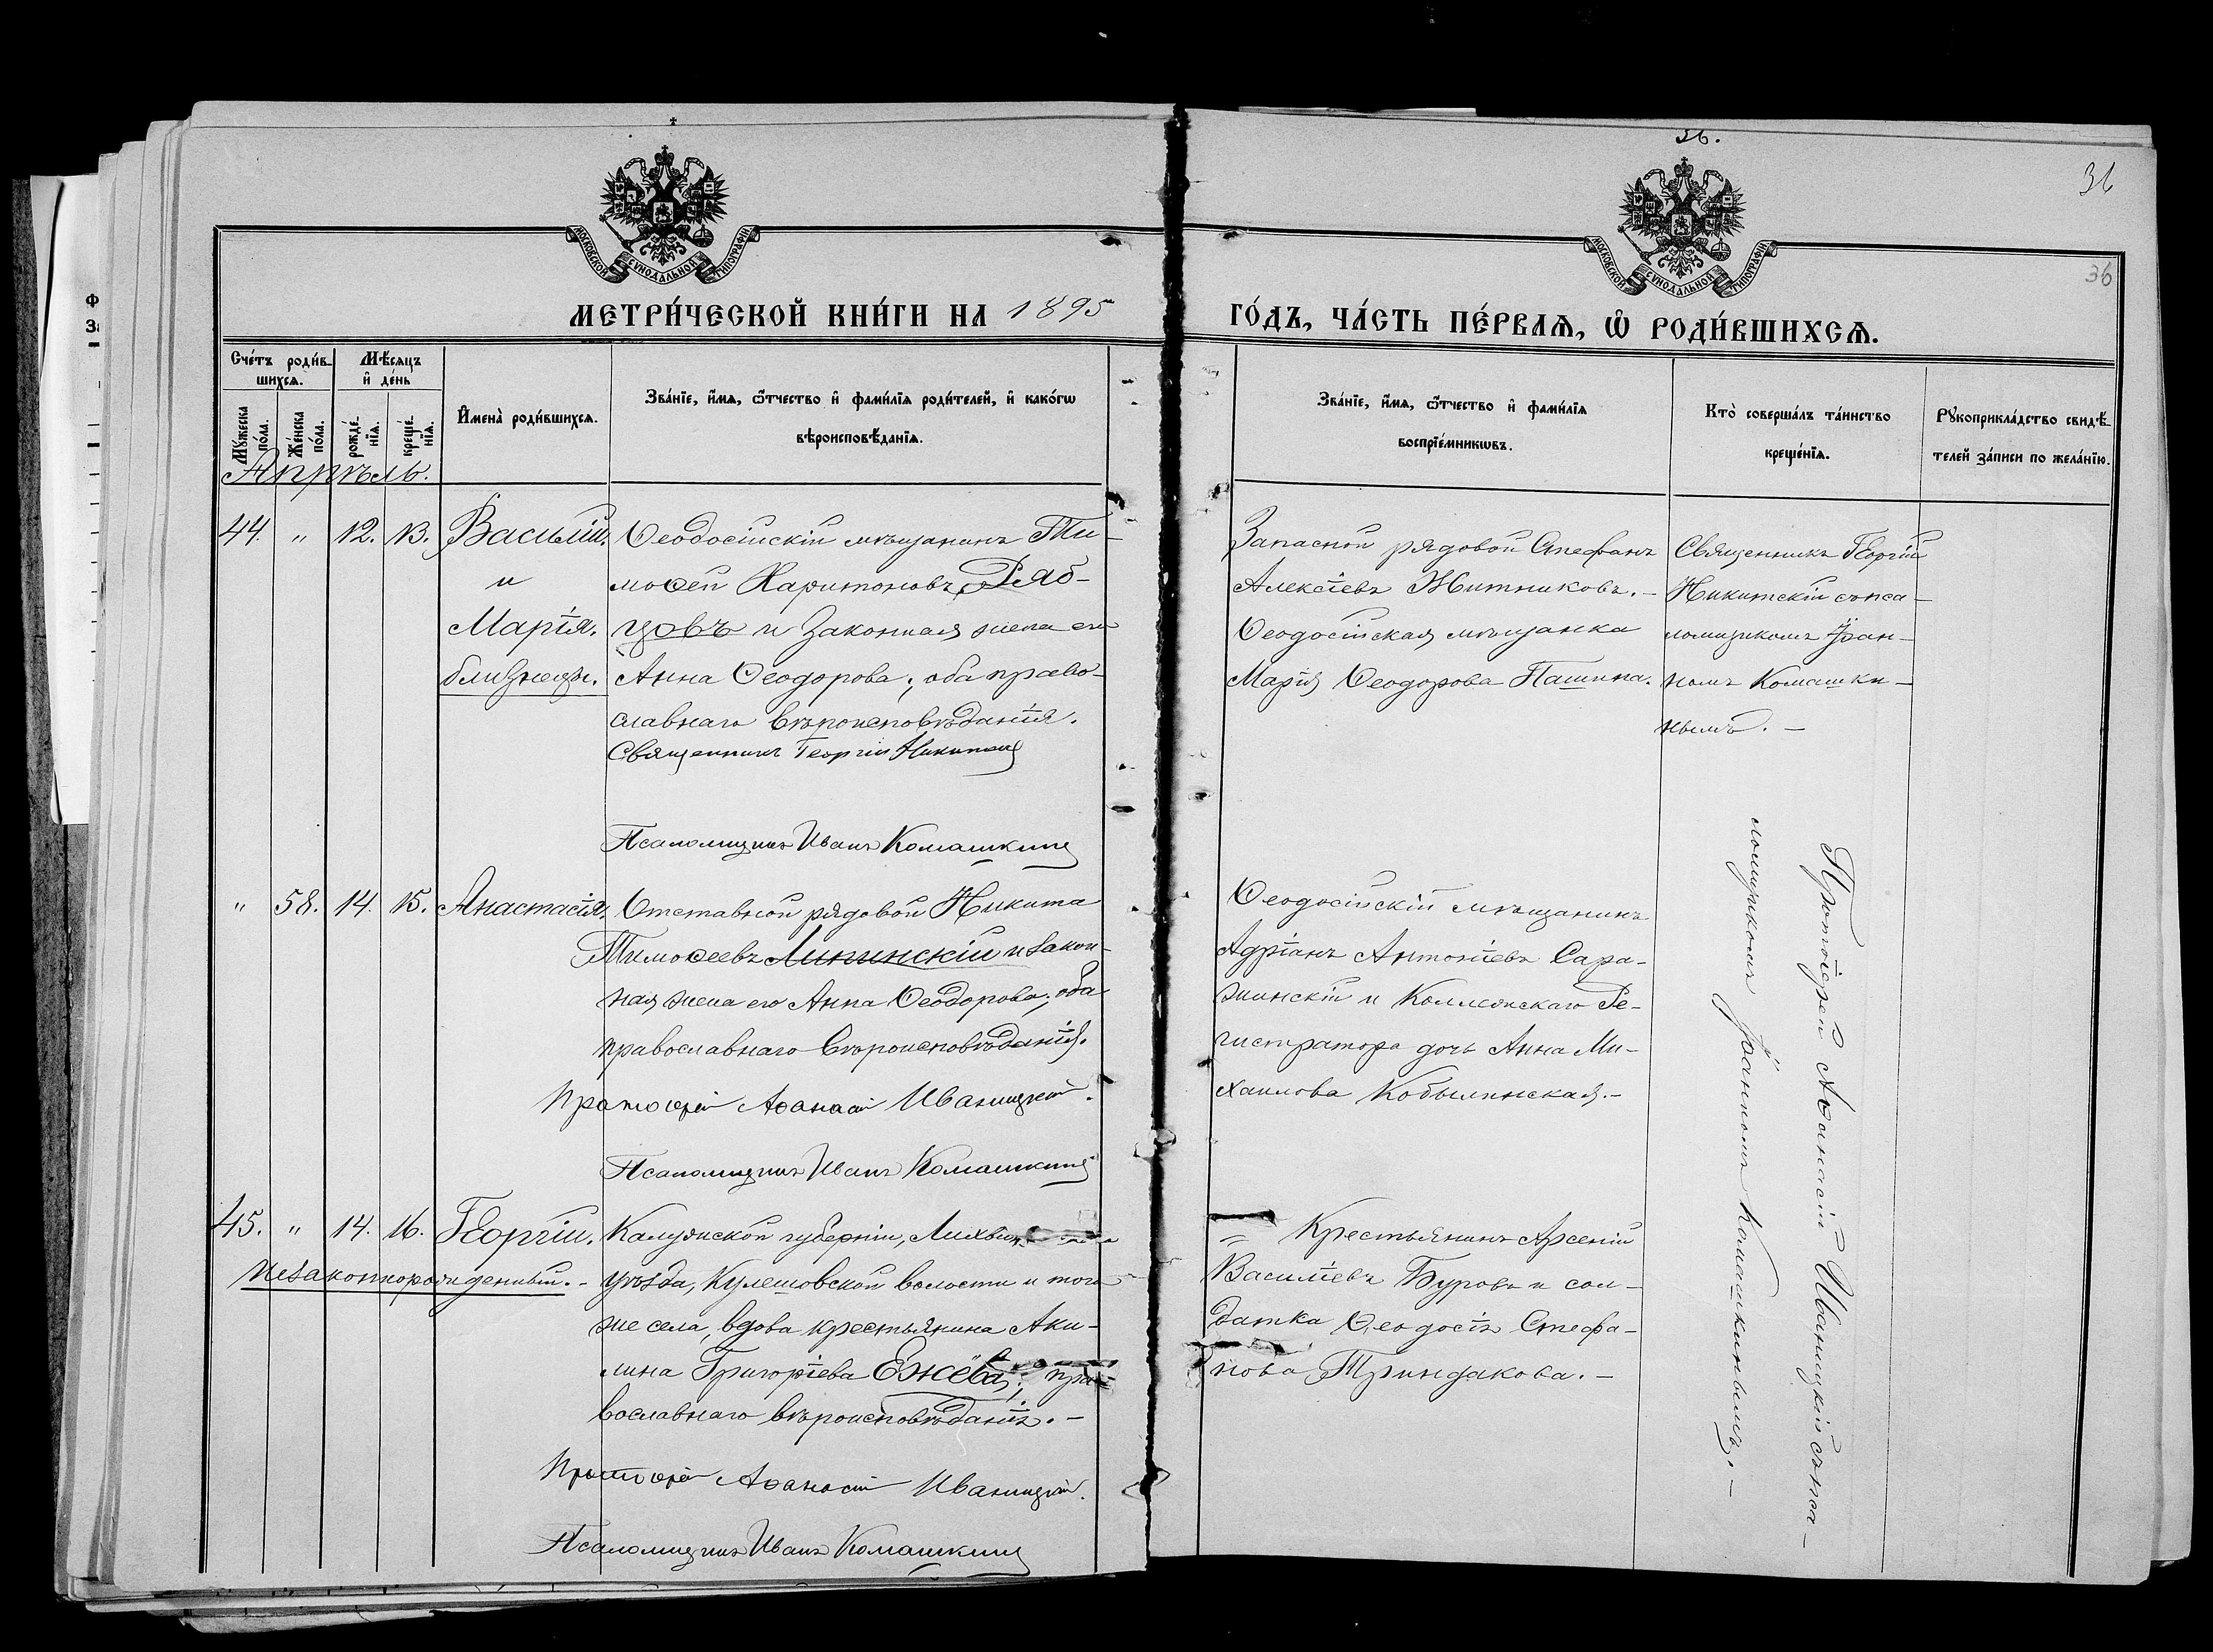 36.
36
36
МОСКОВСКОЙ СѴНОДАЛЬНОЙ ТИПОГРАФІИ
МОСКОВСКОЙ СѴНОДАЛЬНОЙ ТИПОГРАФІИ
МЕТРИ́ЧЕСКОЙ КНИ́ГИ НА 1895 ГО́ДЪ, ЧА́СТЬ ПЕ́РВАѦ, Ѽ РОДИ́ВШИХСѦ.
Сче́тъ роди́в-
шихсѧ.
Мѣ́сѧцъ
и҆ де́нь
Мꙋ́жеска
по́ла.
Же́нска
по́ла.
рожде́-
нїѧ.
креще́-
нїѧ.
И҆мена̀ роди́вшихсѧ.
Зва́нїе, и҆́мѧ, ѻ҆́тчество и҆ фами́лїѧ роди́телей, и҆ како́гѡ
вѣроисповѣ́данїѧ.
Зва́нїе, и҆́мѧ, ѻ҆́тчество и҆ фами́лїѧ
воспрїе́мникѡвъ.
Кто̀ соверша́лъ та́инство
креще́нїѧ.
Рꙋкоприкла́дство свидѣ́-
телей за́писи по жела́нїю.
Апрѣль.
44. " 12. 13. Василій.
и
Марія.
близнецы.
Ѳеодосійскій мѣщанинъ Ти-
моѳей Харитоновъ Ряб-
цовъ и законная жена его
Анна Ѳеодорова; оба право-
славнаго вѣроисповѣданія.
Священникъ Георгій Никитскій
Псаломщикъ Иванъ Комашкинъ
Запасной рядовой Стефанъ
Алексіевъ Житниковъ. –
Ѳеодосійская мѣщанка
Марія Ѳеодорова Пашина.
Священникъ Георгій
Никитскій съ пса-
ломщикомъ Іоан-
номъ Комашки-
нымъ. –
" 58. 14. 15. Анастасія.
Отставной рядовой Никита
Тимоѳеевъ Липинскій и закон-
ная жена его Анна Ѳеодорова; оба
православнаго вѣроисповѣданія.
Протоіерей Аѳанасій Иваницкій.
Псаломщикъ Иванъ Комашкинъ
Ѳеодосійскій мѣщанинъ
Адріанъ Антоніевъ Сара-
жинскій и Коллежскаго Ре-
гистратора дочь Анна Ми-
хаилова Кобылинская. –
Протоіерей Аѳанасій Иваницкій съ пса-
ломщикомъ Іоанномъ Комашкинымъ. –
45. " 14. 16. Георгій.
незаконнорожденный. –
Калужской губерніи,
уѣзда, Кулешовской волости и того
же села, вдова крестьянина Аки-
лина Григоріева Ежева; пра-
вославнаго вѣроисповѣданія. –
Протоіерей Аѳанасій Иваницкій.
Псаломщикъ Иванъ Комашкинъ
Крестьянинъ Арсеній
Василіевъ Буровъ и сол-
датка Ѳеодосія Стефа-
нова Триндакова. –